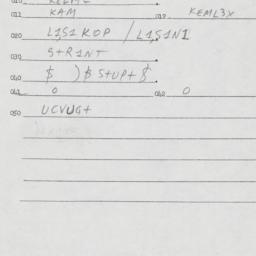 011 KAM 012 KEML3X
020 L1S1KOP / L1,S1N1
030 S+R1NT
040 $ ) $ S+UP+ $
041 0 042 0
050 UCVUG+